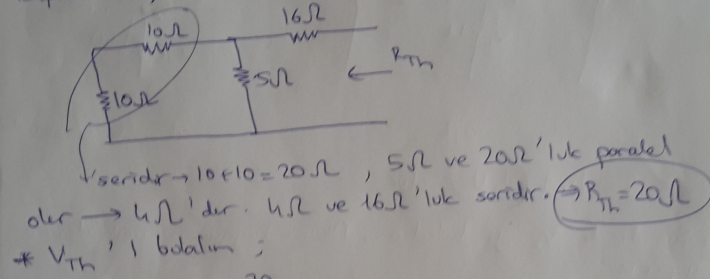 10Ω 16Ω
10Ω 5Ω R_Th
seridir → 10+10=20Ω , 5Ω ve 20Ω'luk paralel
olur → 4Ω'dur. 4Ω ve 16Ω'luk seridir. → R_Th=20Ω
* V_Th 'ı bulalım ;